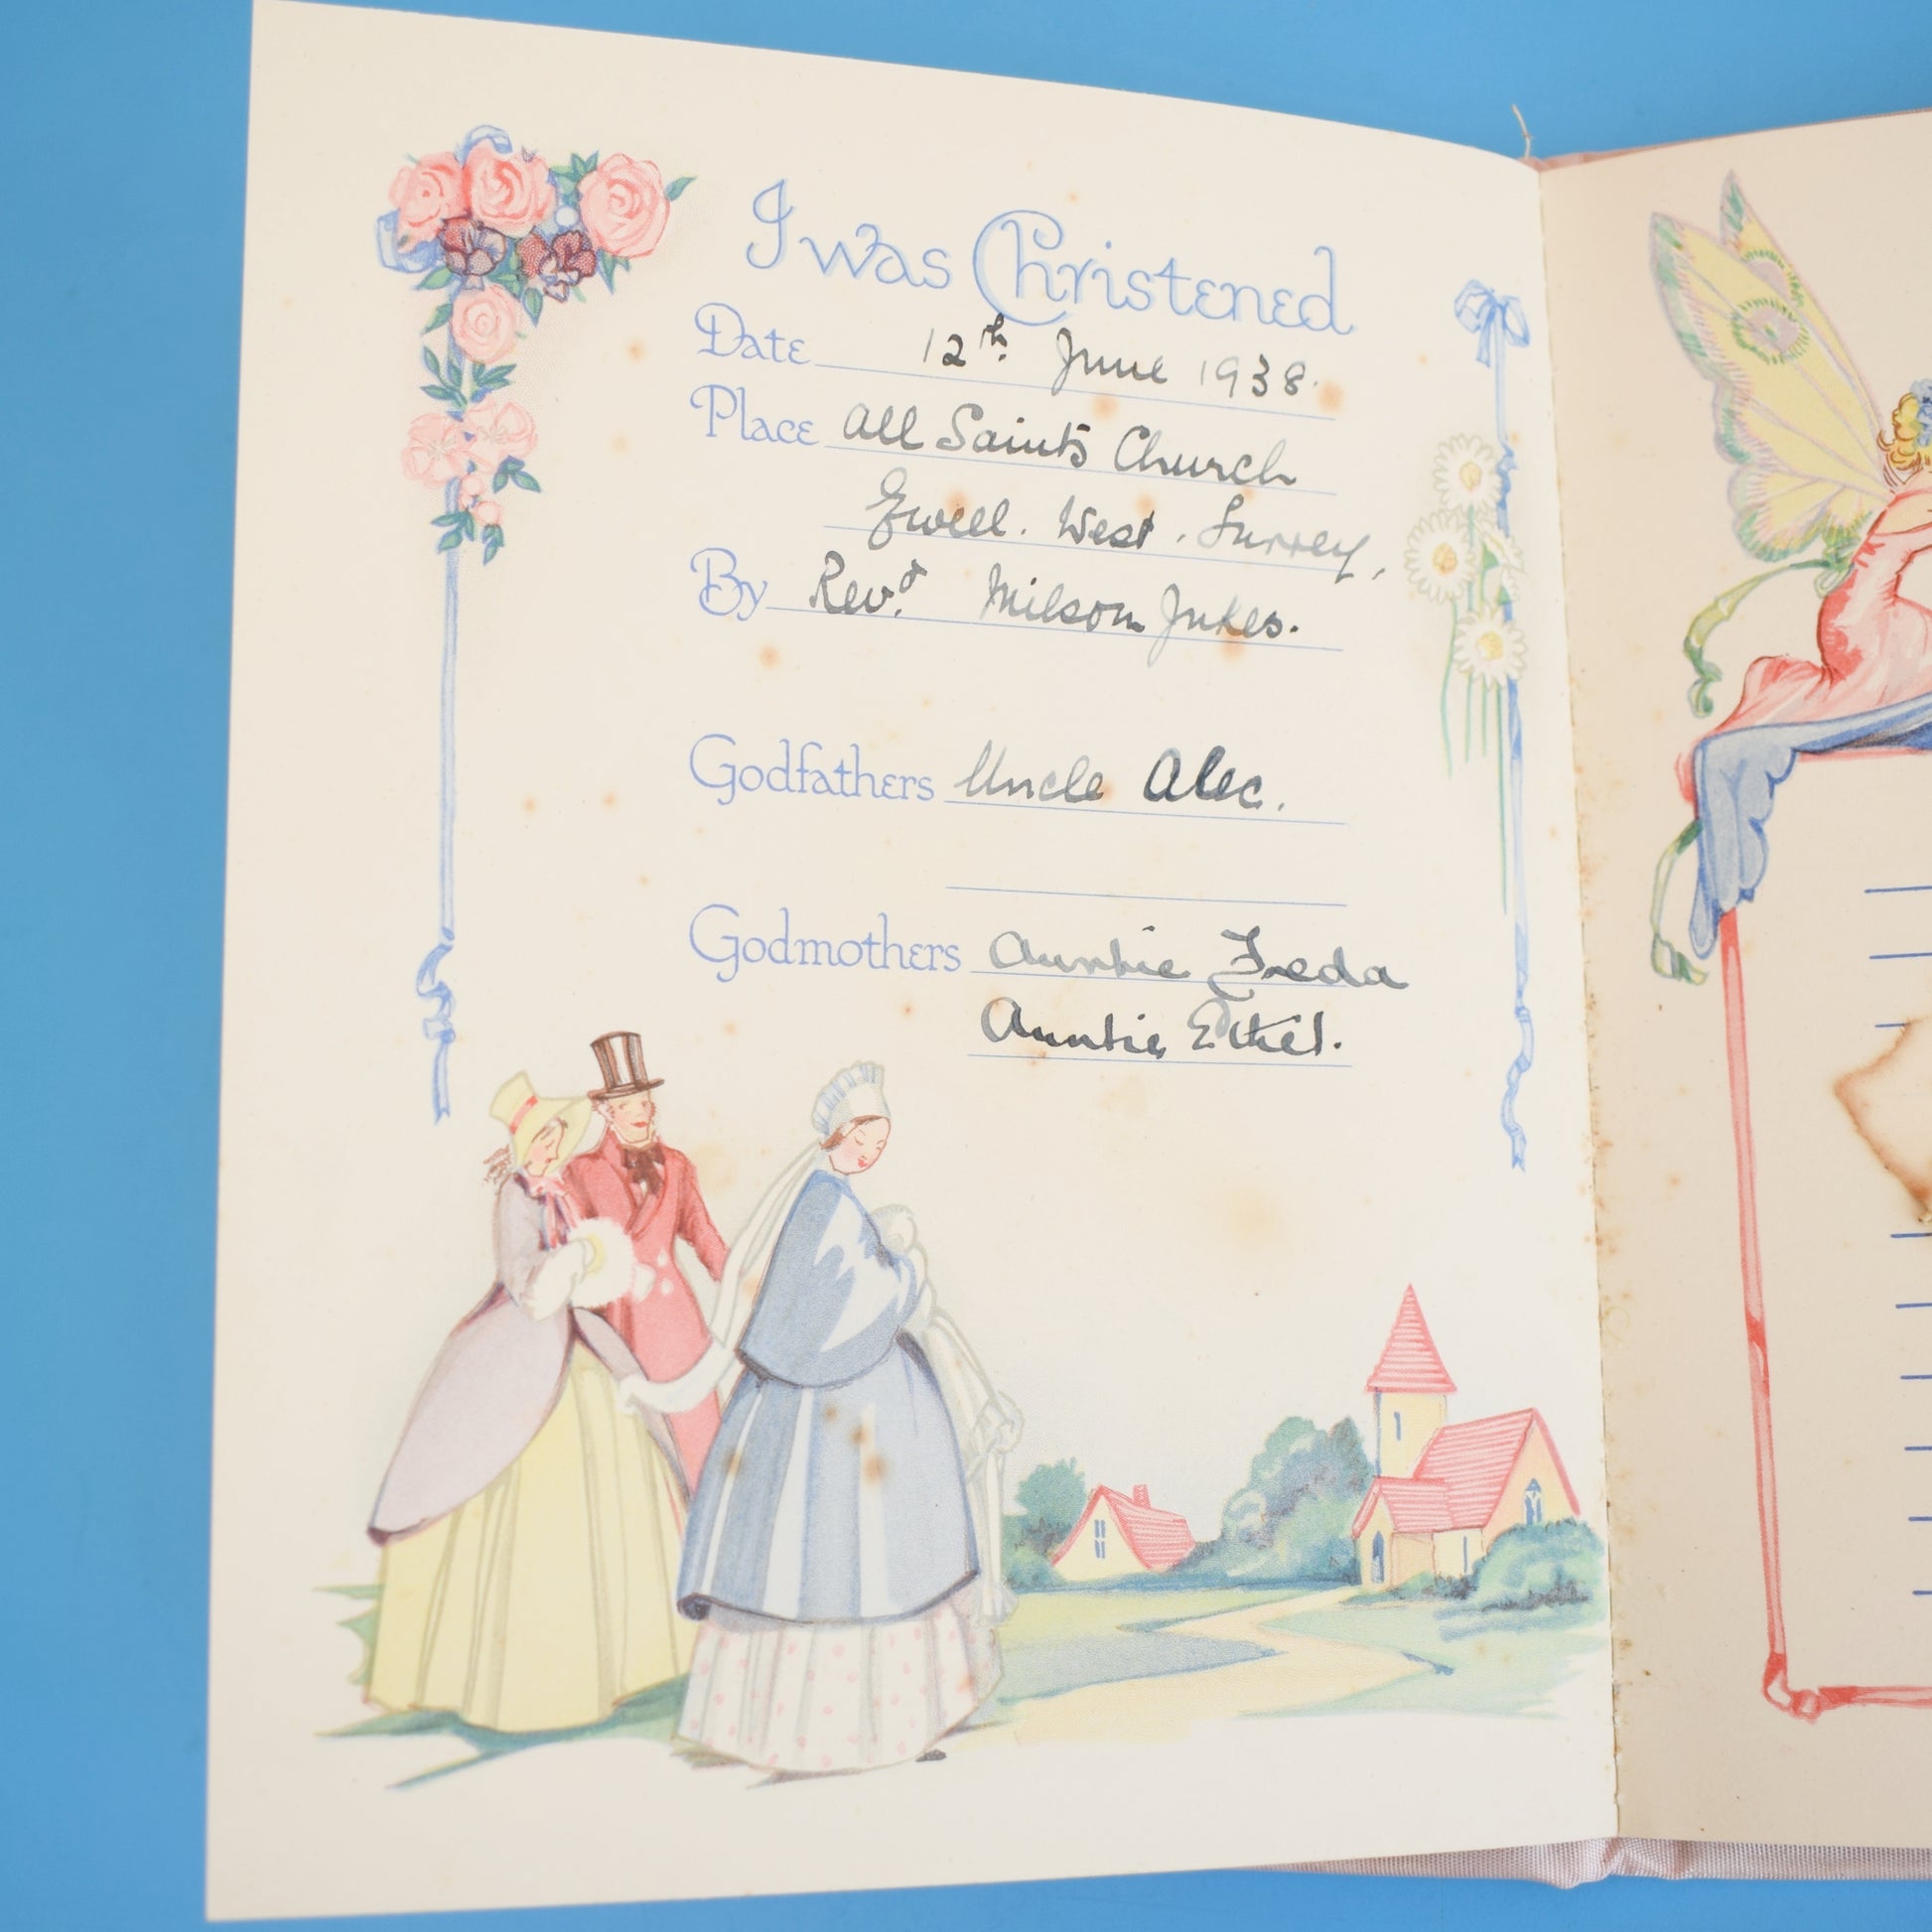 I was Christened
Date 12th June 1938.
Place All Saints Church
Ewell. West. Surrey,
By Revd. Milsom Jukes.
Godfathers Uncle Alec.
Godmothers Auntie Freda
Auntie Ethel.